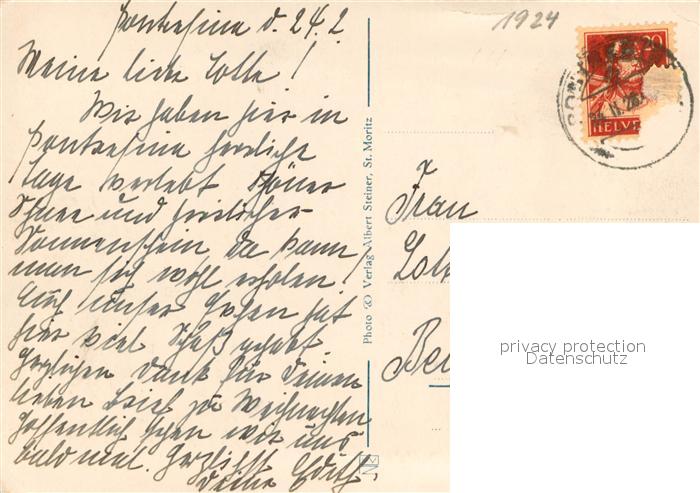 Pontresina d. 24. 2
1924
Meine liebe Lotte!
Wir haben hier in
Pontresina herrliche
Tage verlebt. Schöner
Schnee und herrlicher
Sonnenschein, da kann
man sich wohl erholen!
Auch unser hat
hier viel Spaß gehabt.
Herzlichen Dank für Deinen
lieben Brief zu Weihnachten
Hoffentlich sehen wir uns
bald mal. Herzlichst
Deine Edith.
Photo & Verlag Albert Steiner, St. Moritz
20
HELVE
Frau
privacy protection
Datenschutz